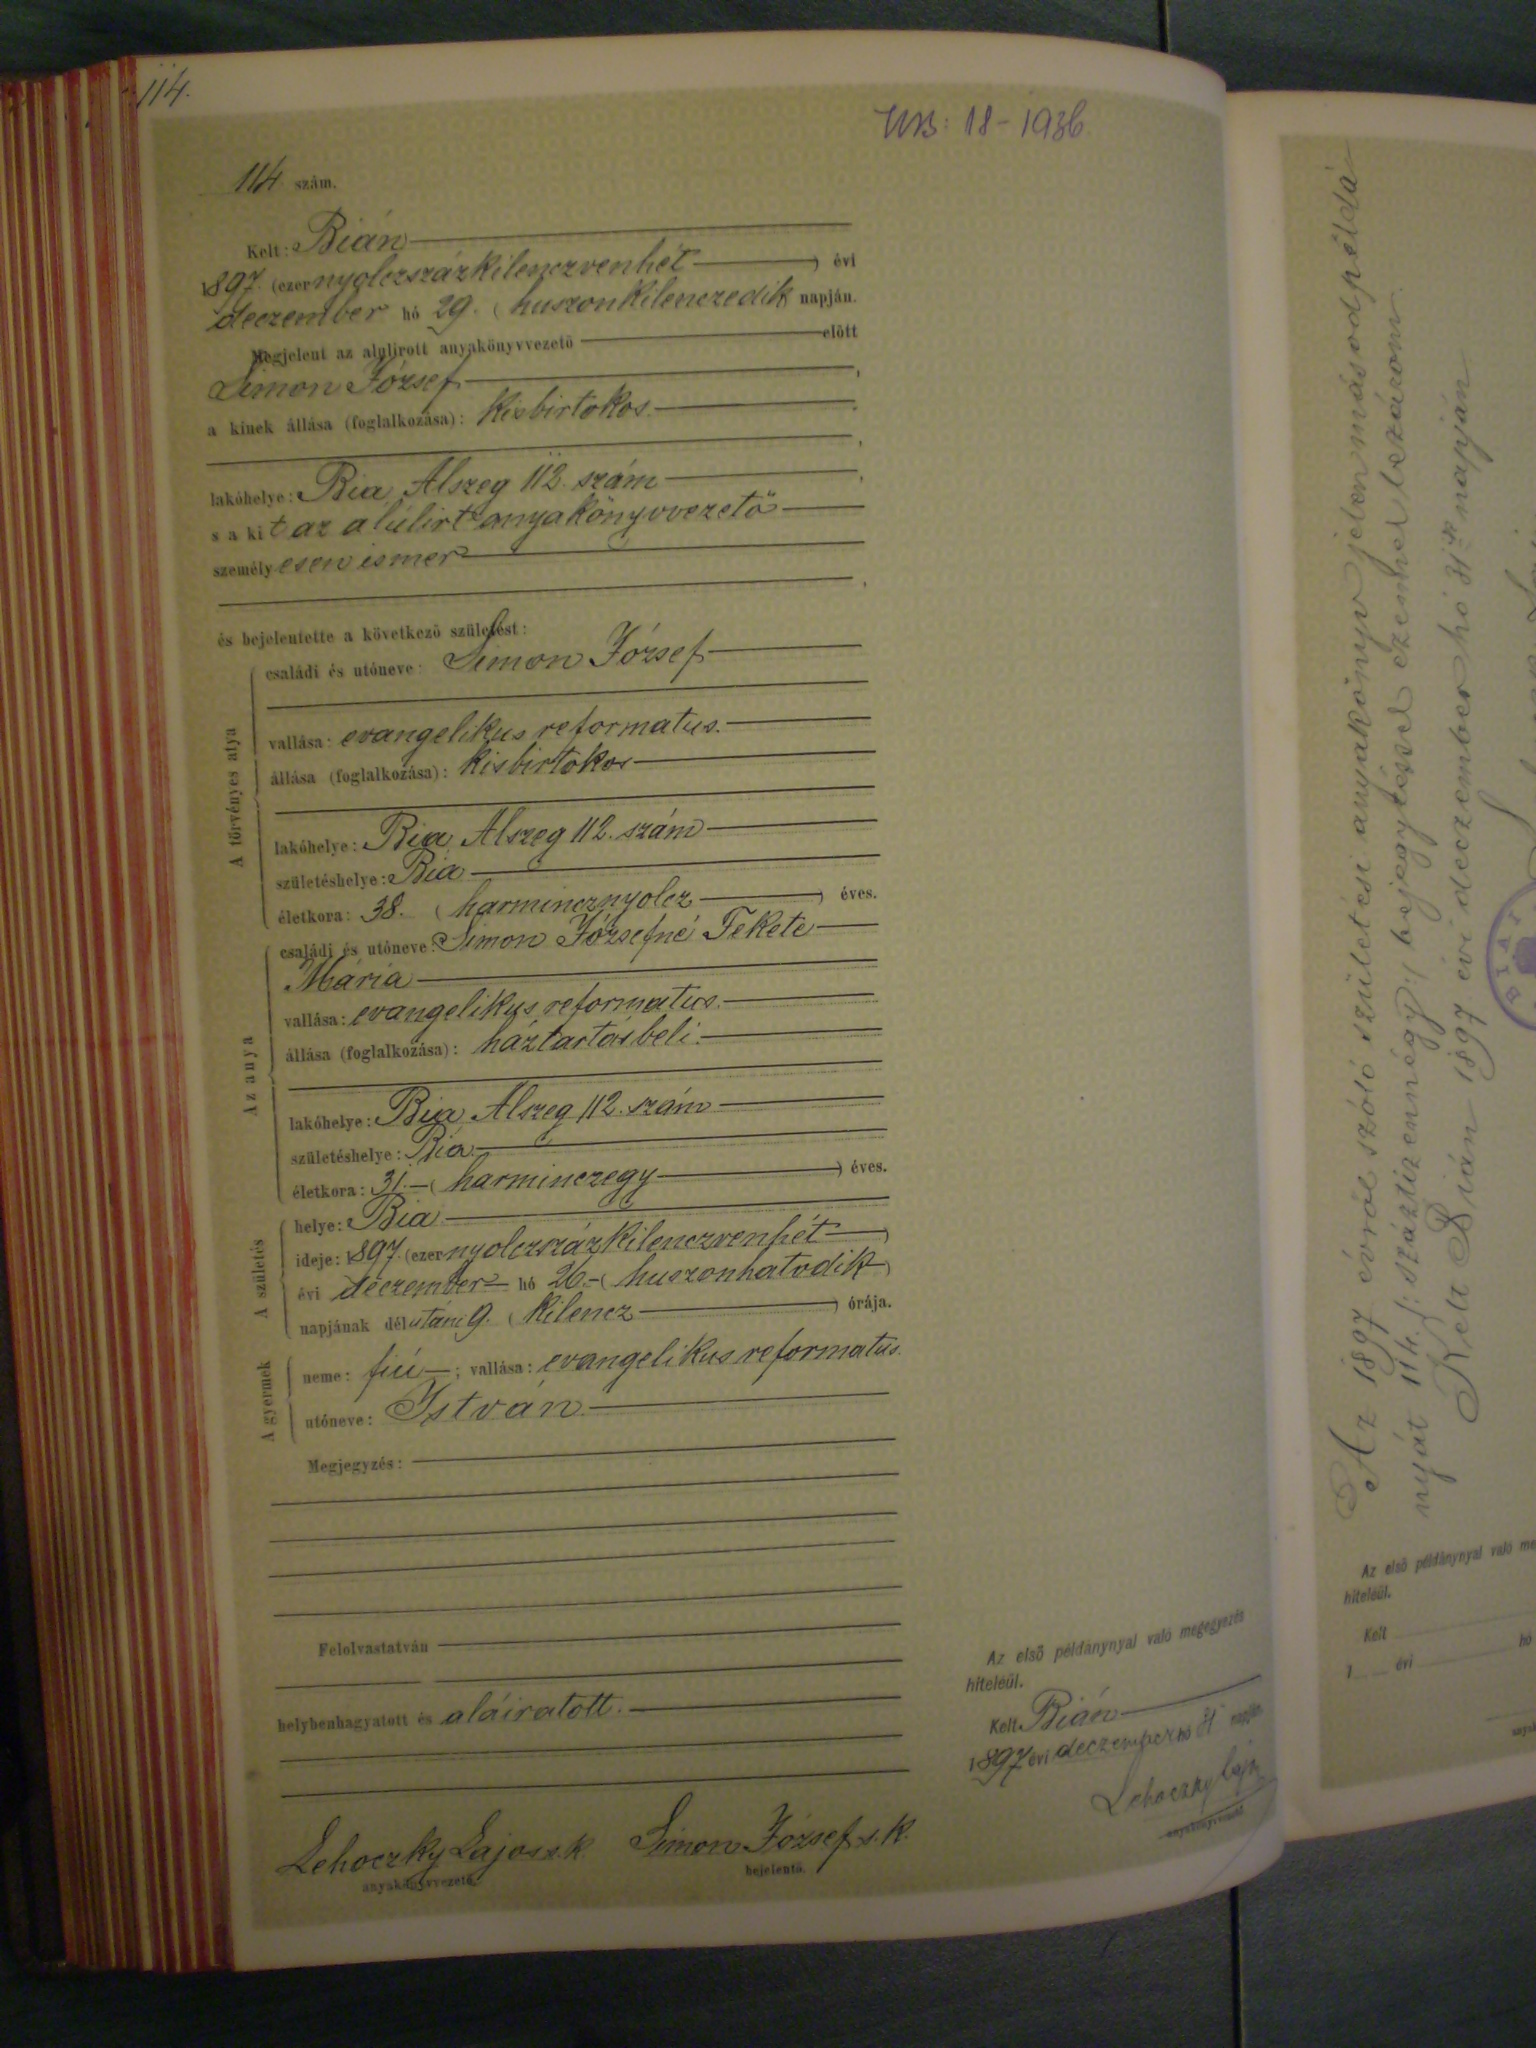 114.
UB: 18 - 1936
114 szám.
Kelt: Bián
1897. (ezer nyolczszázkilenczvenhét ) évi
deczember hó 29. (huszonkilenczedik napján.
Megjelent az alulirott anyakönyvvezető előtt
Simon József ,
a kinek állása (foglalkozása): kisbirtokos.
lakóhelye: Bia, Alszeg 112. szám ,
s a kit az alúlirt anyakönyvvezető
személyesen ismer
és bejelentette a következő születést:
A törvényes atya
családi és utóneve: Simon József
vallása: evangelikus reformatus.
állása (foglalkozása): kisbirtokos
lakóhelye: Bia, Alszeg 112. szám
születéshelye: Bia
életkora: 38. (harmincznyolcz ) éves.
Az anya
családi és utóneve: Simon Józsefné Fekete
Mária
vallása: evangelikus reformatus.
állása (foglalkozása): háztartásbeli.
lakóhelye: Bia, Alszeg 112. szám
születéshelye: Bia.
életkora: 31. (harminczegy ) éves.
A születés
helye: Bia
ideje: 1897. (ezer nyolczszázkilenczvenhét )
évi deczember hó 26. (huszonhatodik )
napjának délután 9. (kilencz ) órája.
A gyermek
neme: fiú ; vallása: evangelikus reformatus.
utóneve: István.
Megjegyzés:
Felolvastatván
helybenhagyatott és aláiratott.
Lehoczky Lajos s.k. Simon József s.k.
anyakönyvvezető. bejelentő.
Az első példánynyal való megegyezés
hiteléül.
Kelt Bián
1897 évi deczember hó 31 napján
Lehoczky Lajos
anyakönyvvezető
Az 1897 évről szóló születési anyakönyv jelen másodpéldá
nyát 114. /: száztizennégy :/ bejegyzéssel ezennel lezárom.
Kelt Bián 1897 évi deczember hó 31ik napján
Az első példánynyal való me
hiteléül.
Kelt
1 évi hó